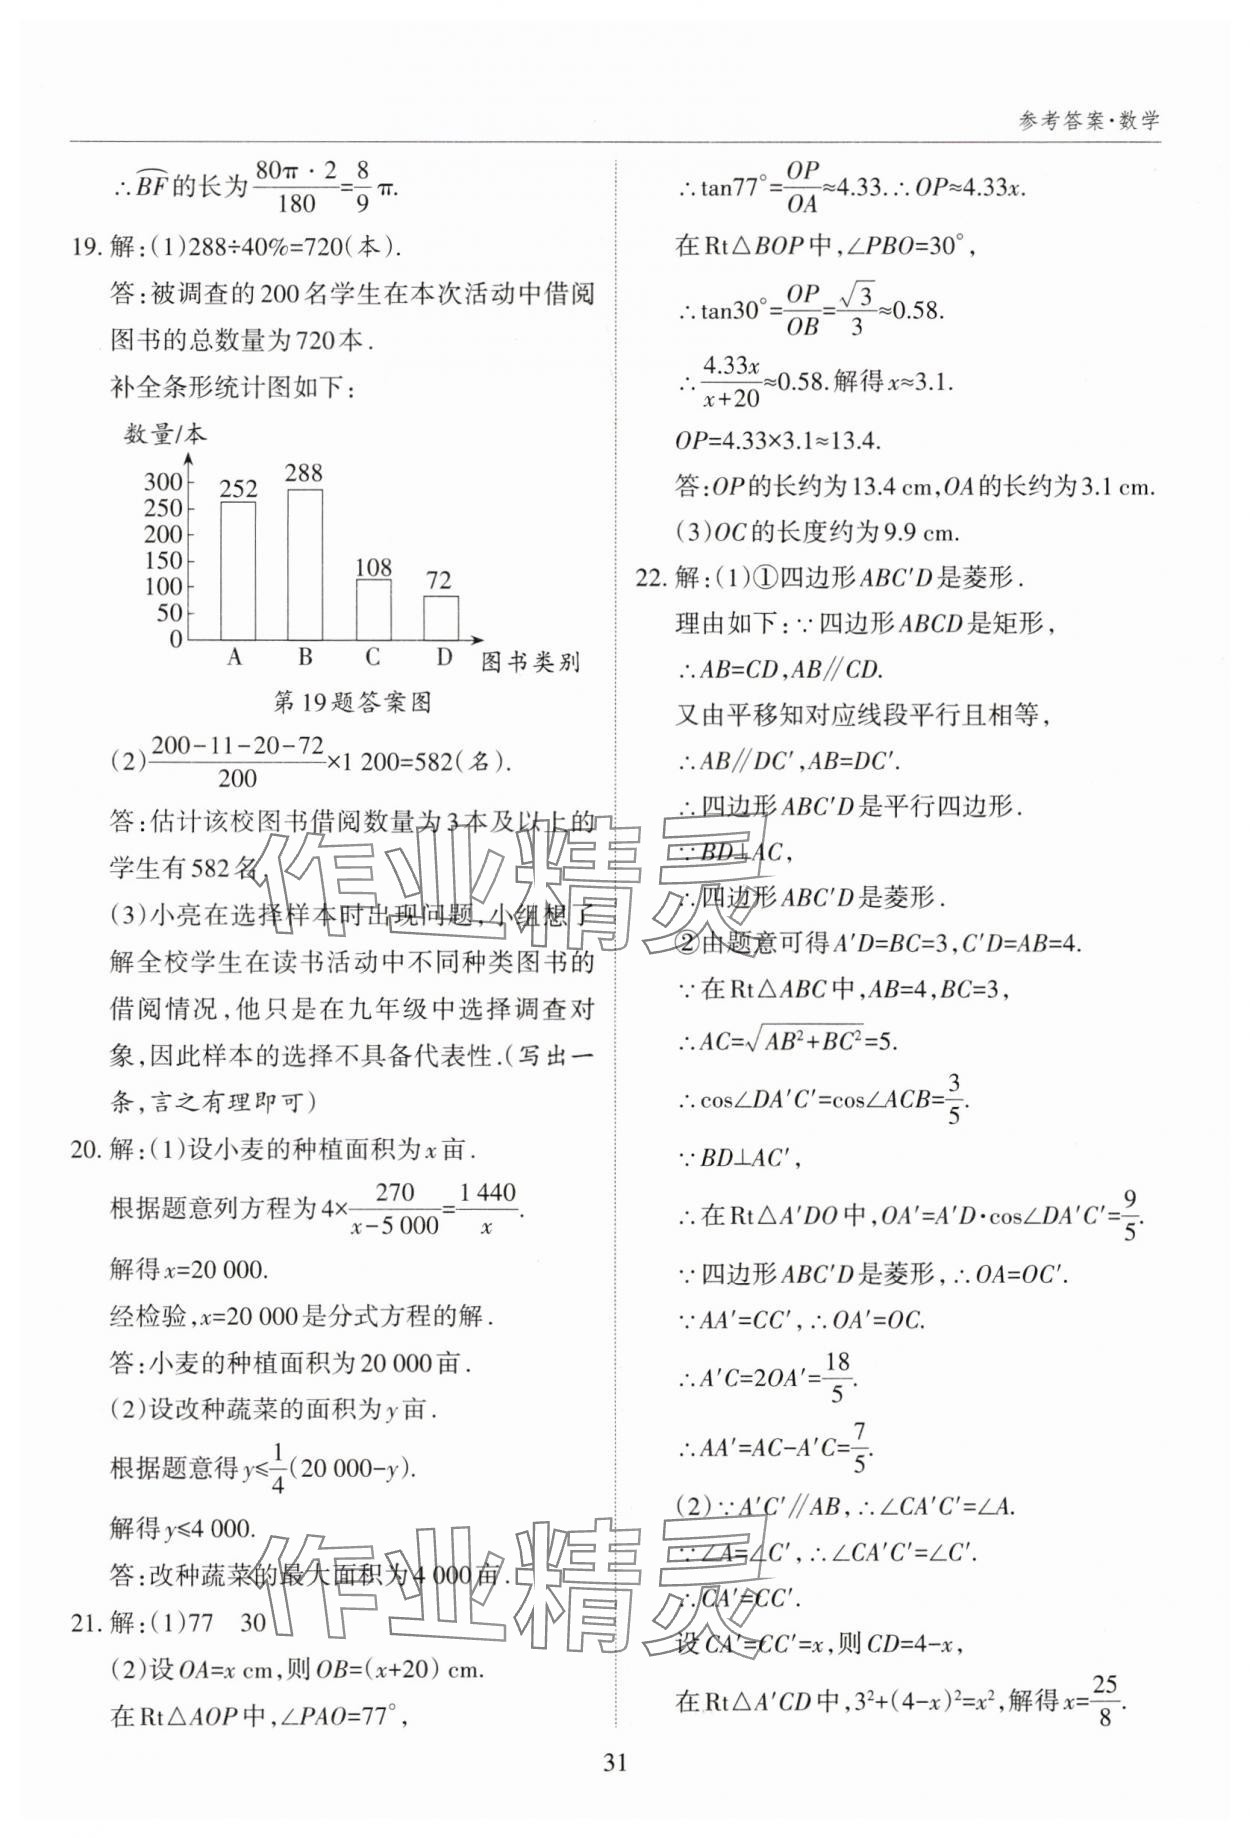 参考答案·数学
∴BF的长为80π·2/180=8/9π.
19. 解:(1)288÷40%=720(本).
答:被调查的200名学生在本次活动中借阅
图书的总数量为720本.
补全条形统计图如下:
数量/本
300
250
200
150
100
50
0
252
288
108
72
A B C D 图书类别
第19题答案图
(2)(200-11-20-72)/200×1 200=582(名).
答:估计该校图书借阅数量为3本及以上的
学生有582名.
(3)小亮在选择样本时出现问题,小组想了
解全校学生在读书活动中不同种类图书的
借阅情况,他只是在九年级中选择调查对
象,因此样本的选择不具备代表性.(写出一
条,言之有理即可)
20. 解:(1)设小麦的种植面积为x亩.
根据题意列方程为4×270/(x-5 000)=1 440/x.
解得x=20 000.
经检验,x=20 000是分式方程的解.
答:小麦的种植面积为20 000亩.
(2)设改种蔬菜的面积为y亩.
根据题意得y≤1/4(20 000-y).
解得y≤4 000.
答:改种蔬菜的最大面积为4 000亩.
21. 解:(1)77 30
(2)设OA=x cm,则OB=(x+20) cm.
在Rt△AOP中,∠PAO=77°,
∴tan77°=OP/OA≈4.33.∴OP≈4.33x.
在Rt△BOP中,∠PBO=30°,
∴tan30°=OP/OB=√3/3≈0.58.
∴4.33x/(x+20)≈0.58.解得x≈3.1.
OP=4.33×3.1≈13.4.
答:OP的长约为13.4 cm,OA的长约为3.1 cm.
(3)OC的长度约为9.9 cm.
22. 解:(1)①四边形ABC′D是菱形.
理由如下:∵四边形ABCD是矩形,
∴AB=CD,AB∥CD.
又由平移知对应线段平行且相等,
∴AB∥DC′,AB=DC′.
∴四边形ABC′D是平行四边形.
∵BD⊥AC,
∴四边形ABC′D是菱形.
②由题意可得A′D=BC=3,C′D=AB=4.
∵在Rt△ABC中,AB=4,BC=3,
∴AC=√(AB²+BC²)=5.
∴cos∠DA′C′=cos∠ACB=3/5.
∵BD⊥AC′,
∴在Rt△A′DO中,OA′=A′D·cos∠DA′C′=9/5.
∵四边形ABC′D是菱形,∴OA=OC′.
∵AA′=CC′,∴OA′=OC.
∴A′C=2OA′=18/5.
∴AA′=AC-A′C=7/5.
(2)∵A′C′∥AB,∴∠CA′C′=∠A.
∵∠A=∠C′,∴∠CA′C′=∠C′.
∴CA′=CC′.
设CA′=CC′=x,则CD=4-x,
在Rt△A′CD中,3²+(4-x)²=x²,解得x=25/8.
作业精灵
作业精灵
31